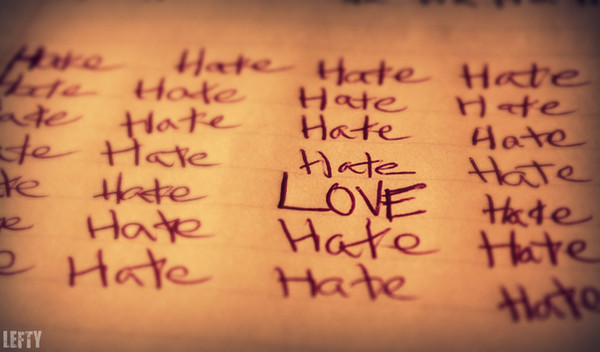 Hate Hate Hate Hate
Hate Hate Hate Hate
ate Hate Hate Hate
te Hate Hate Hate
te Hate LOVE Hate
e Hate Hate Hate
e Hate Hate Hate
LEFTY